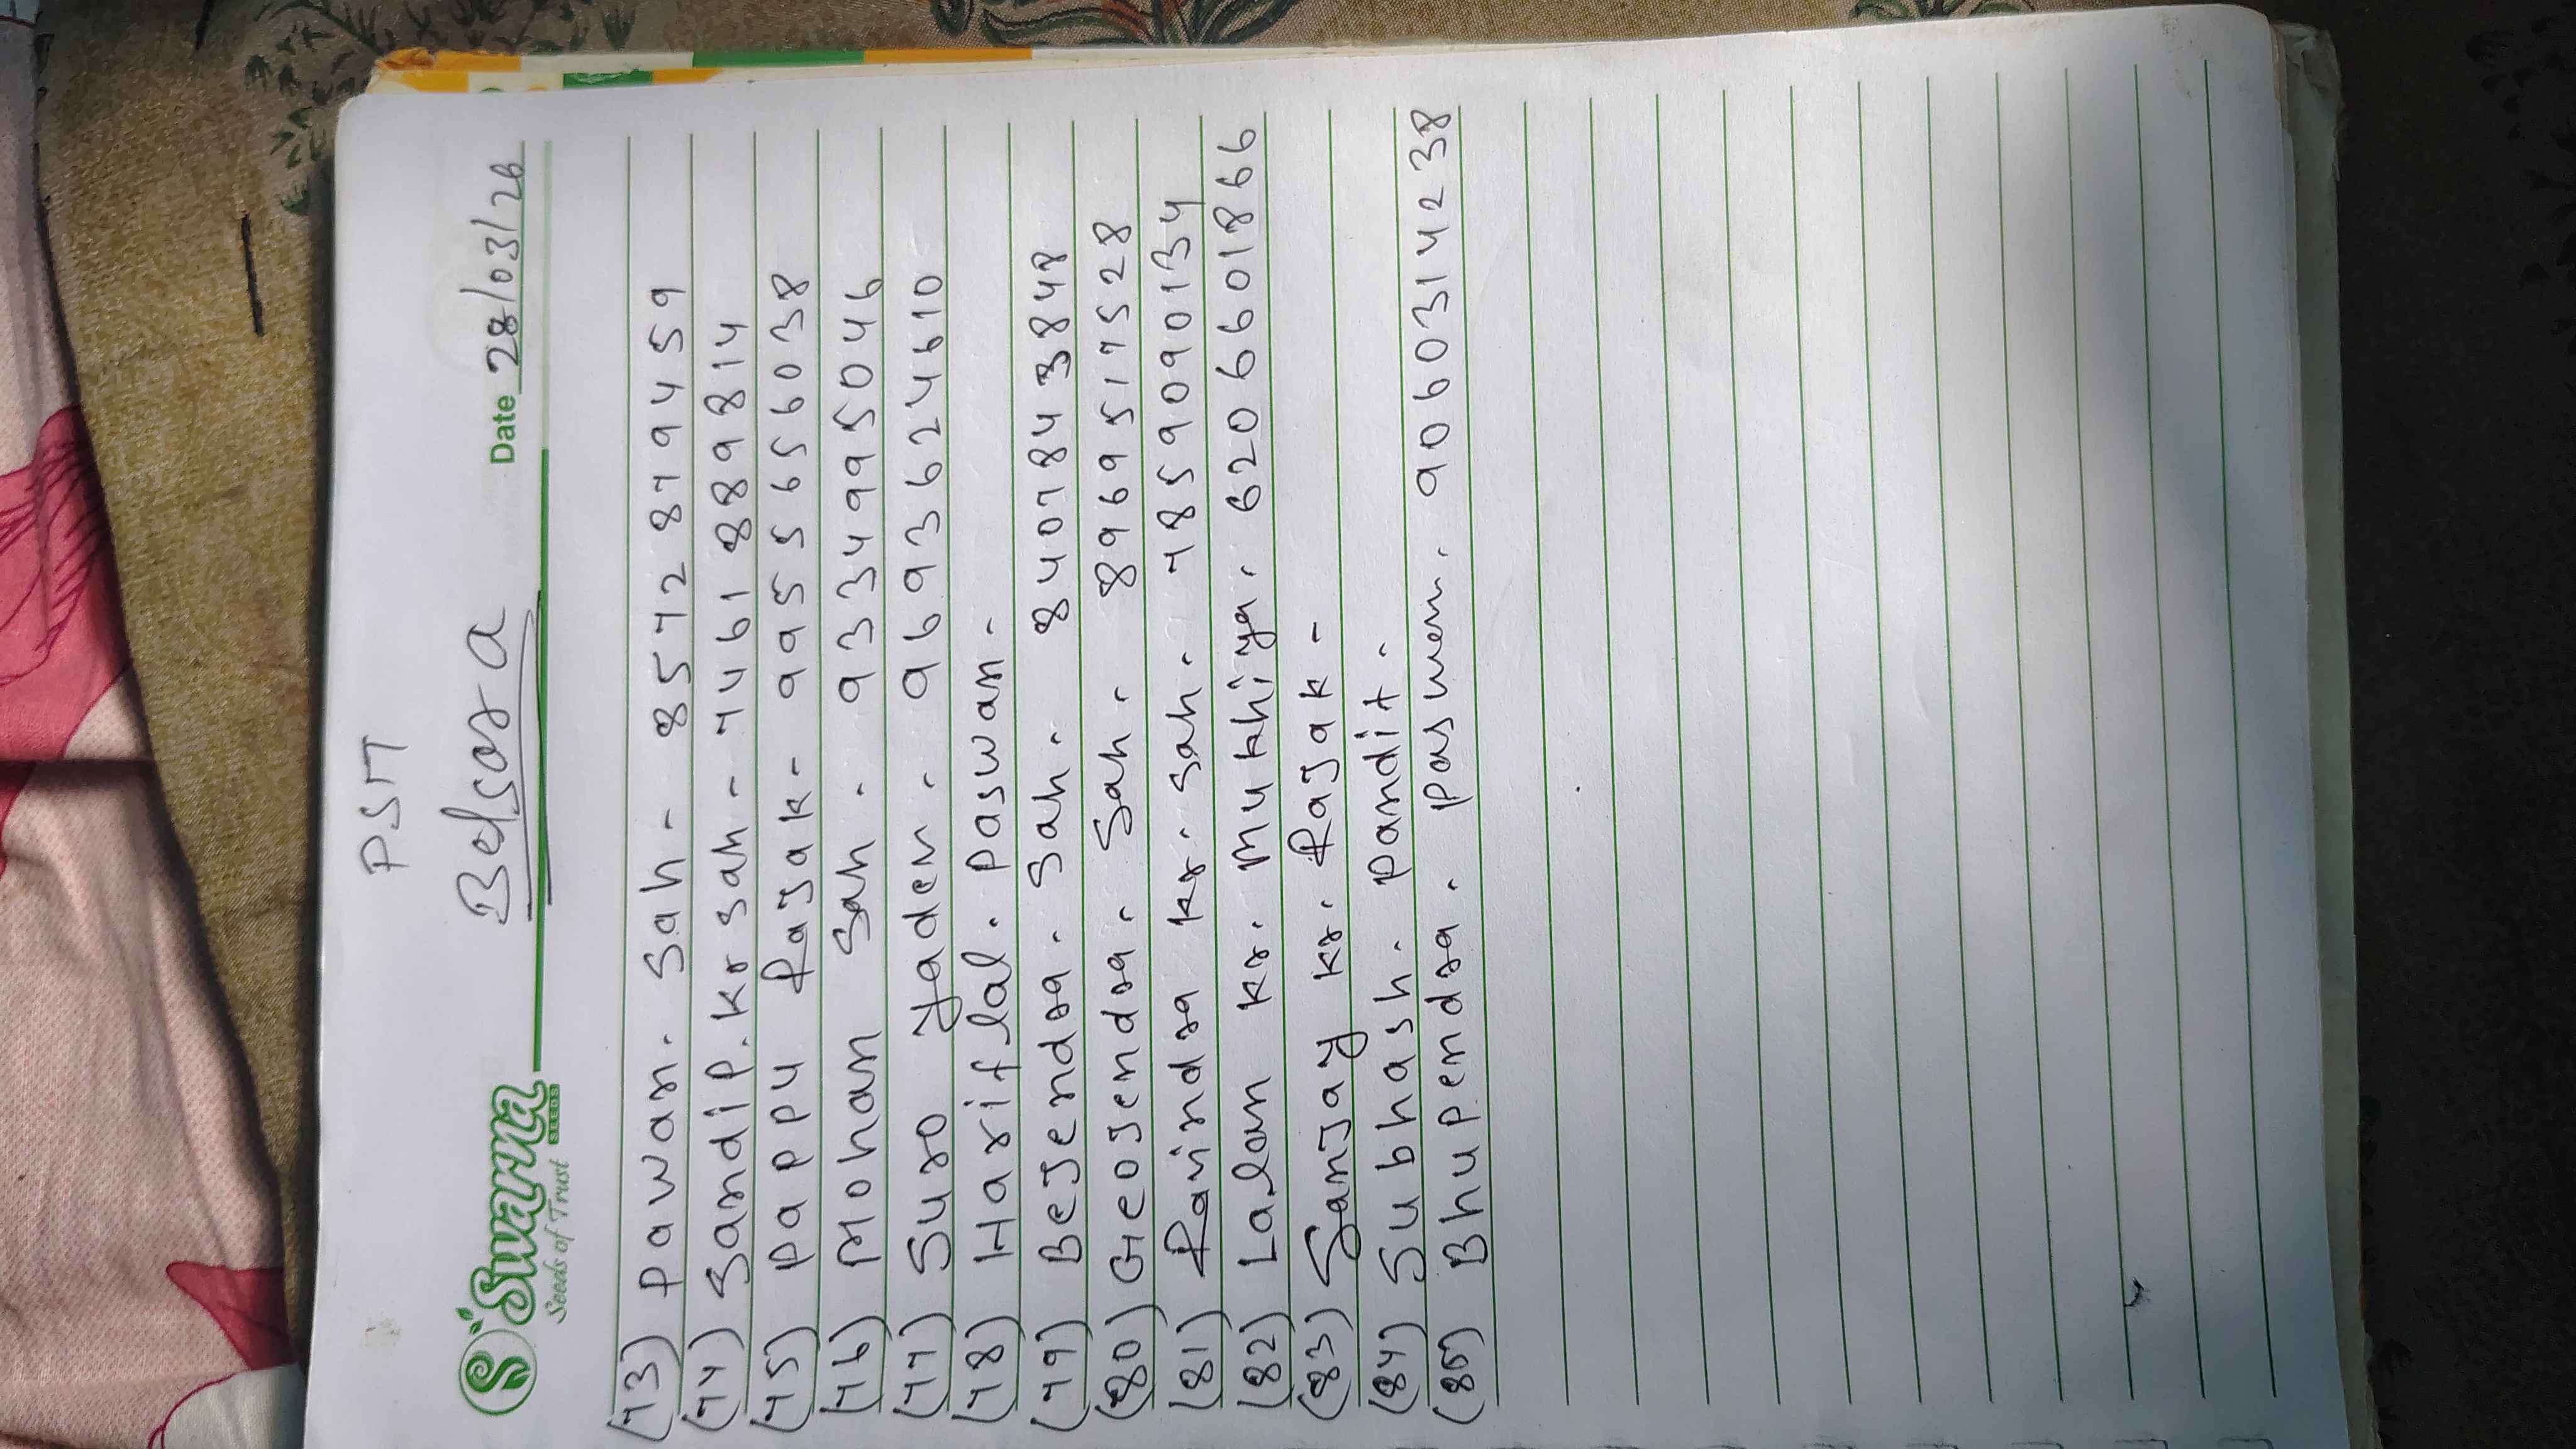 PSM
Belsara
Swarna
SEEDS
Seeds of Trust
Date 28/03/26
(73) Pawan. Sah - 8572879459
(74) Sandip. Kr Sah - 7461889814
(75) Pappu Rajak - 9955656038
(76) Mohan Sah - 9334995046
(77) Suro Yadev - 9693624610
(78) Hariflal. Paswan -
(79) BeJendra. Sah - 8407843848
(80) GeoJendra. Sah - 8969517528
(81) Ravindra Kr. Sah - 7859090134
(82) Lalan Kr. Mukhiya - 6206601866
(83) Sanjay Kr. Rajak -
(84) Subhash. Pandit -
(85) Bhupendra. Paswen. 9060314238